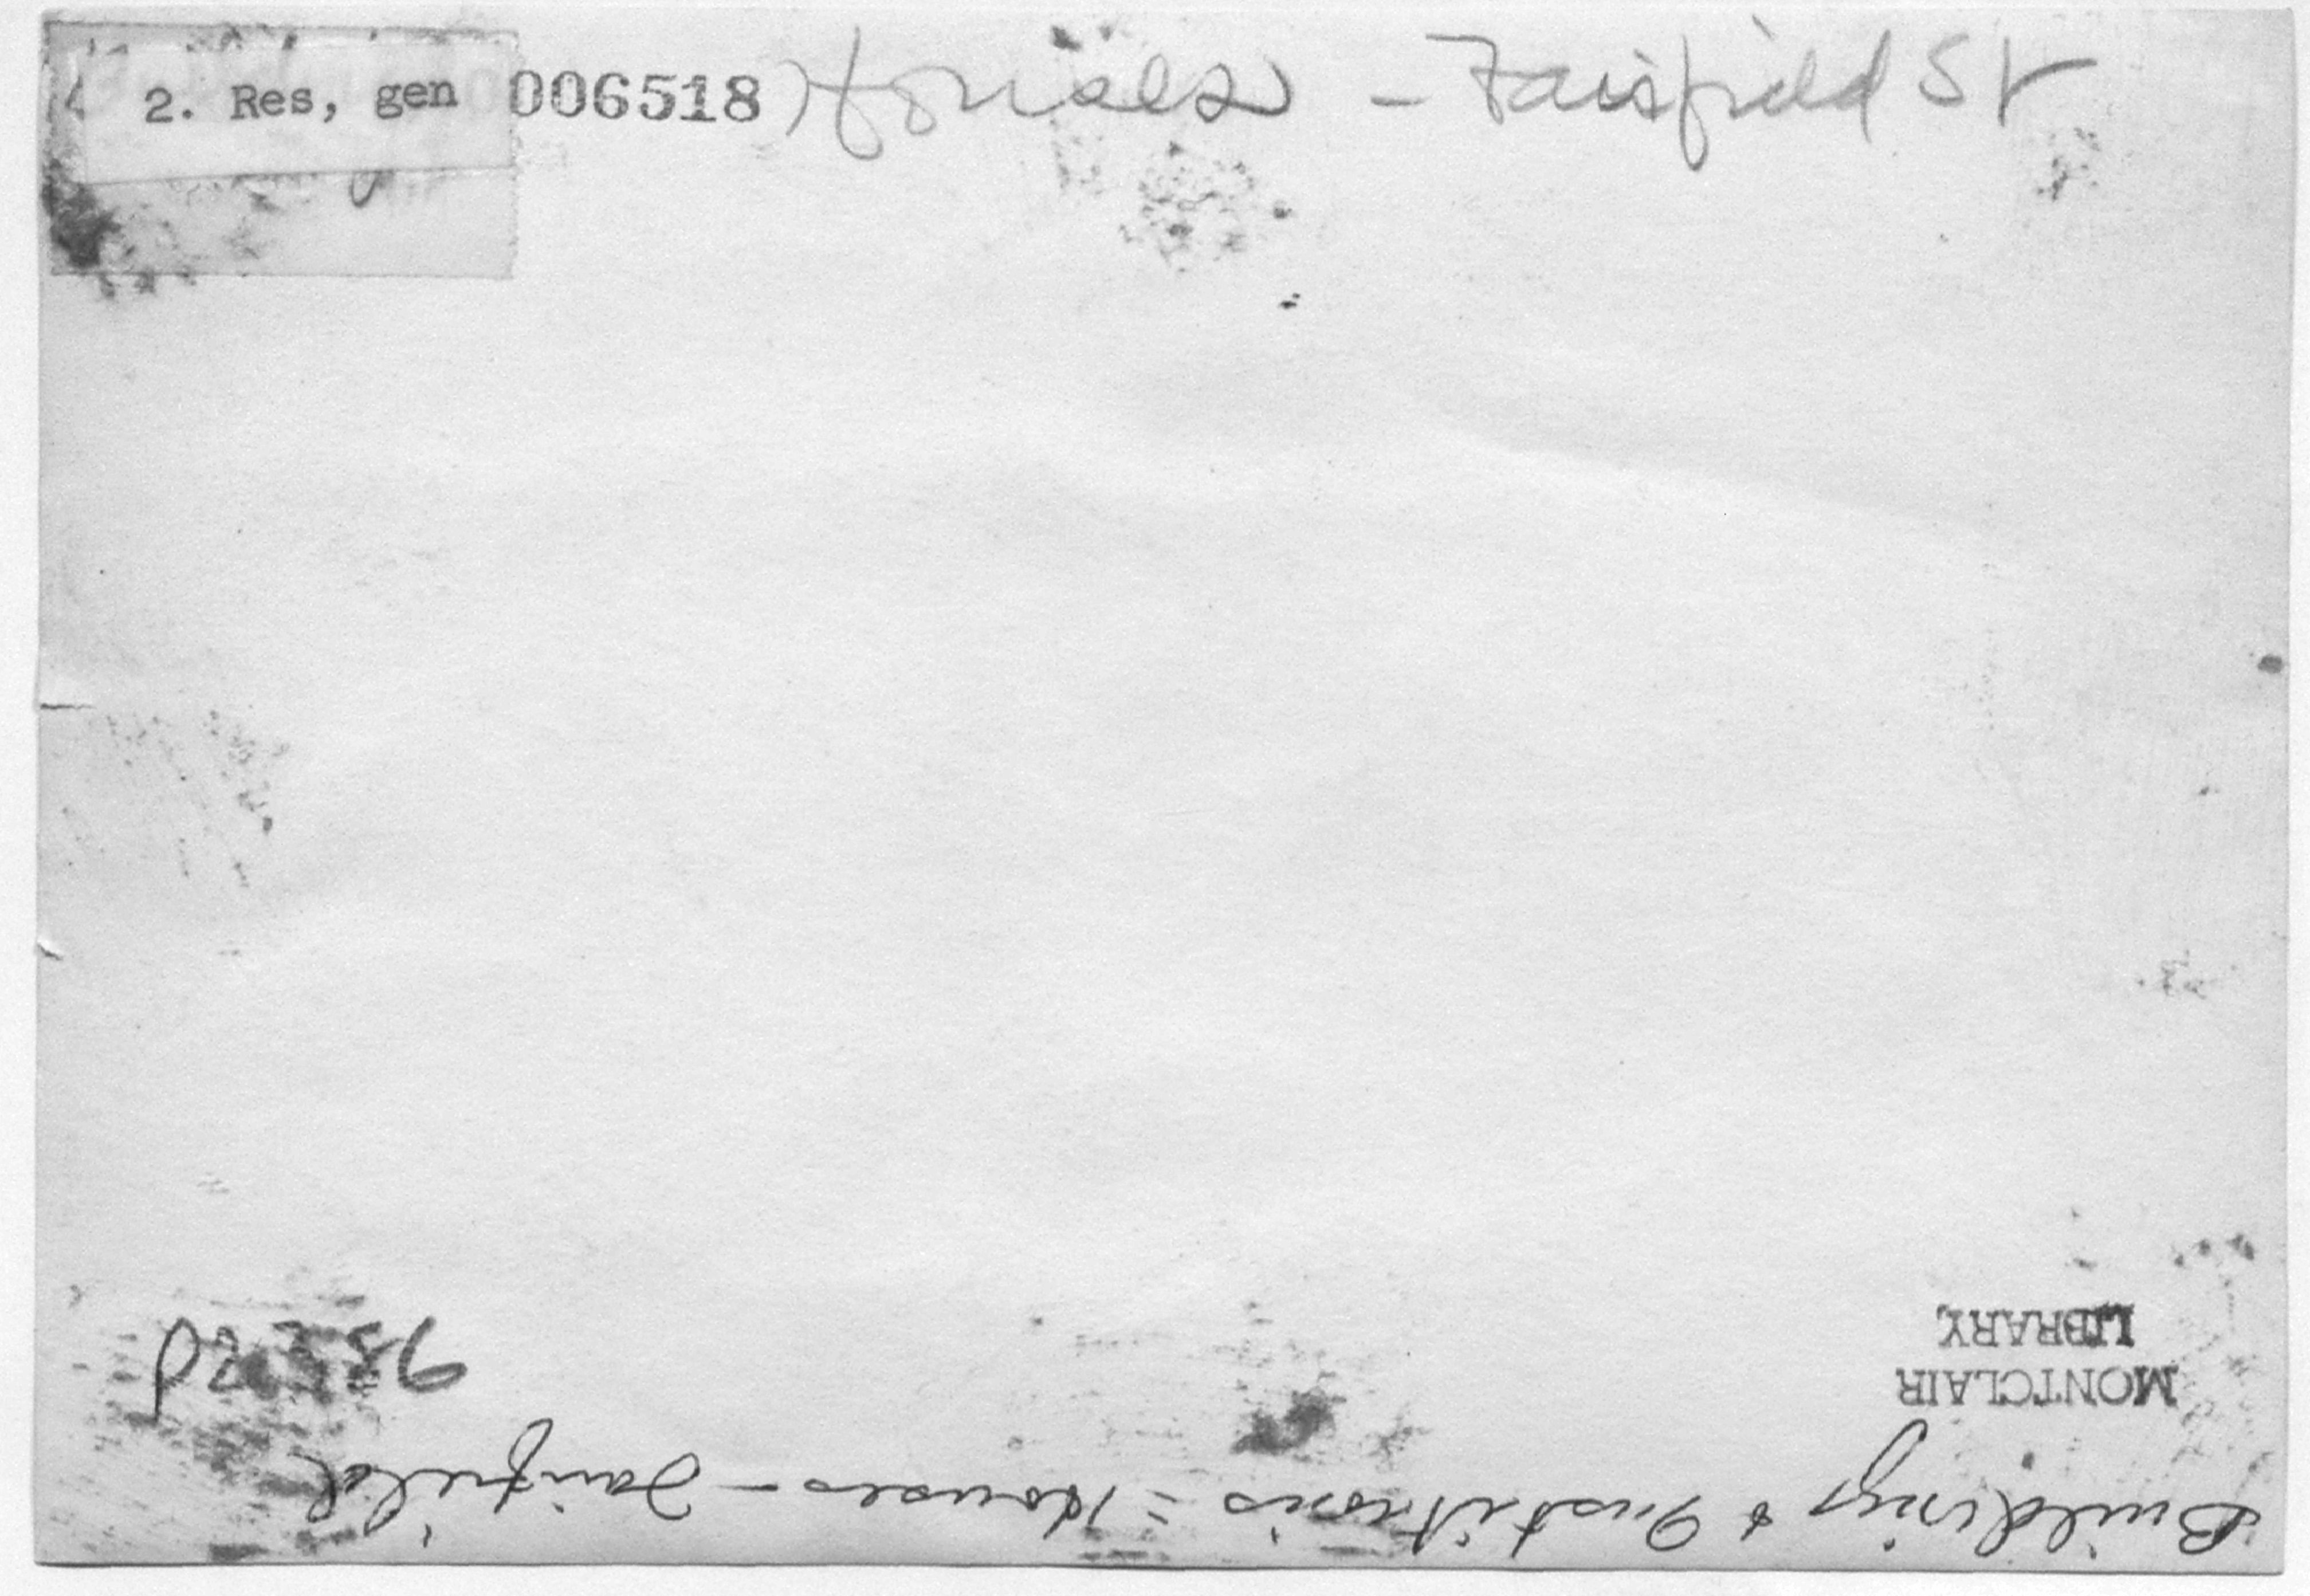 2. Res, gen 006518 Houses - Fairfield St
Buildings & Institutions = Houses - Fairfield
MONTCLAIR
LIBRARY